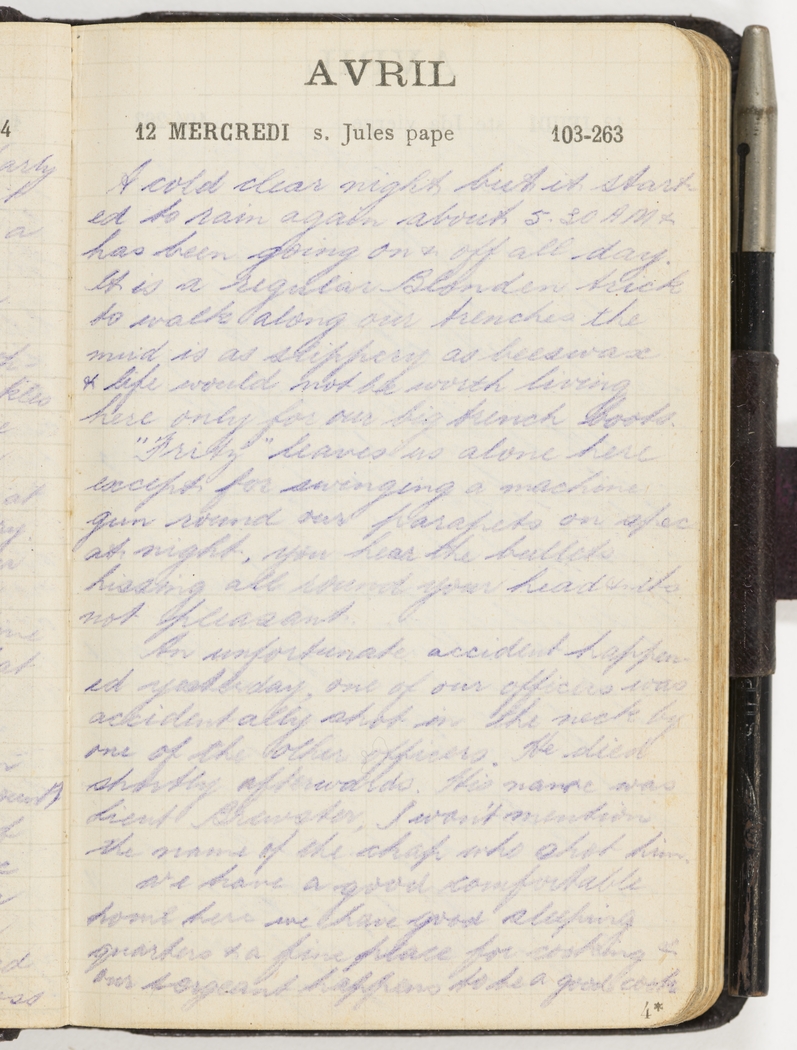 AVRIL
12 MERCREDI s. Jules pape 103-263
A cold clear night but it start-
ed to rain again about 5.30 AM &
has been going on & off all day.
It is a regular Blonden trick
to walk along our trenches the
mud is as slippery as beeswax
& life would not be worth living
here only for our big trench boots.
"Fritz" leaves us alone here
except for swinging a machine
gun round our parapets on spec
at night, you hear the bullets
hissing all round your head & its
not pleasant.
An unfortunate accident happen
ed yesterday, one of our officers was
accidentally shot in the neck by
one of the other officers. He died
shortly afterwards. His name was
Lieut Brewster, I won't mention
the name of the chap who shot him.
We have a good comfortable
home here we have good sleeping
quarters & a fine place for cooking &
our sergeant happens to be a good cook
4*
4
arly
a
kles
at
ry
me
at
ount)
d
ed
ss